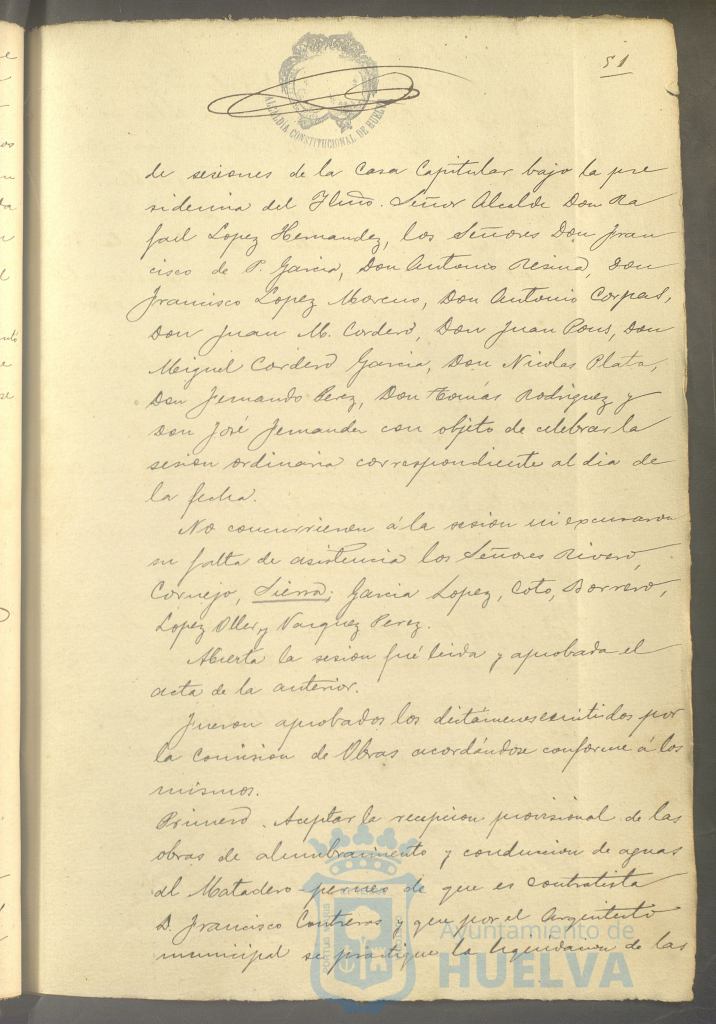 51
ALCALDIA CONSTITUCIONAL DE HUELVA
de sesiones de la Casa Capitular bajo la pre
sidencia del Iltmo. Señor Alcalde Don Ra
fael Lopez Hernandez, los Señores Don Fran
cisco de P. Garcia, Don Antonio Resina, Don
Francisco Lopez Moreno, Don Antonio Corpas,
Don Juan M. Cordero, Don Juan Pons, Don
Miguel Cordero Garcia, Don Nicolas Plata,
Don Fernando Perez, Don Tomás Rodriguez y
Don José Fernandez con objeto de celebrar la
sesion ordinaria correspondiente al dia de
la fecha.
No concurrieron á la sesion ni excusaron
su falta de asistencia los Señores Rivero,
Cornejo, Sierra, Garcia Lopez, Coto, Borrero,
Lopez Oller y Vazquez Perez.
Abierta la sesion fué leida y aprobada el
acta de la anterior.
Fueron aprobados los dictámenes emitidos por
la Comision de Obras acordándose conforme á los
mismos.
Primero. Aceptar la recepcion provisional de las
obras de alumbramiento y conduccion de aguas
al Matadero de que es contratista
D. Francisco Contreras y que por el Arquitecto
municipal se practique la liquidacion de las
Ayuntamiento de
HUELVA